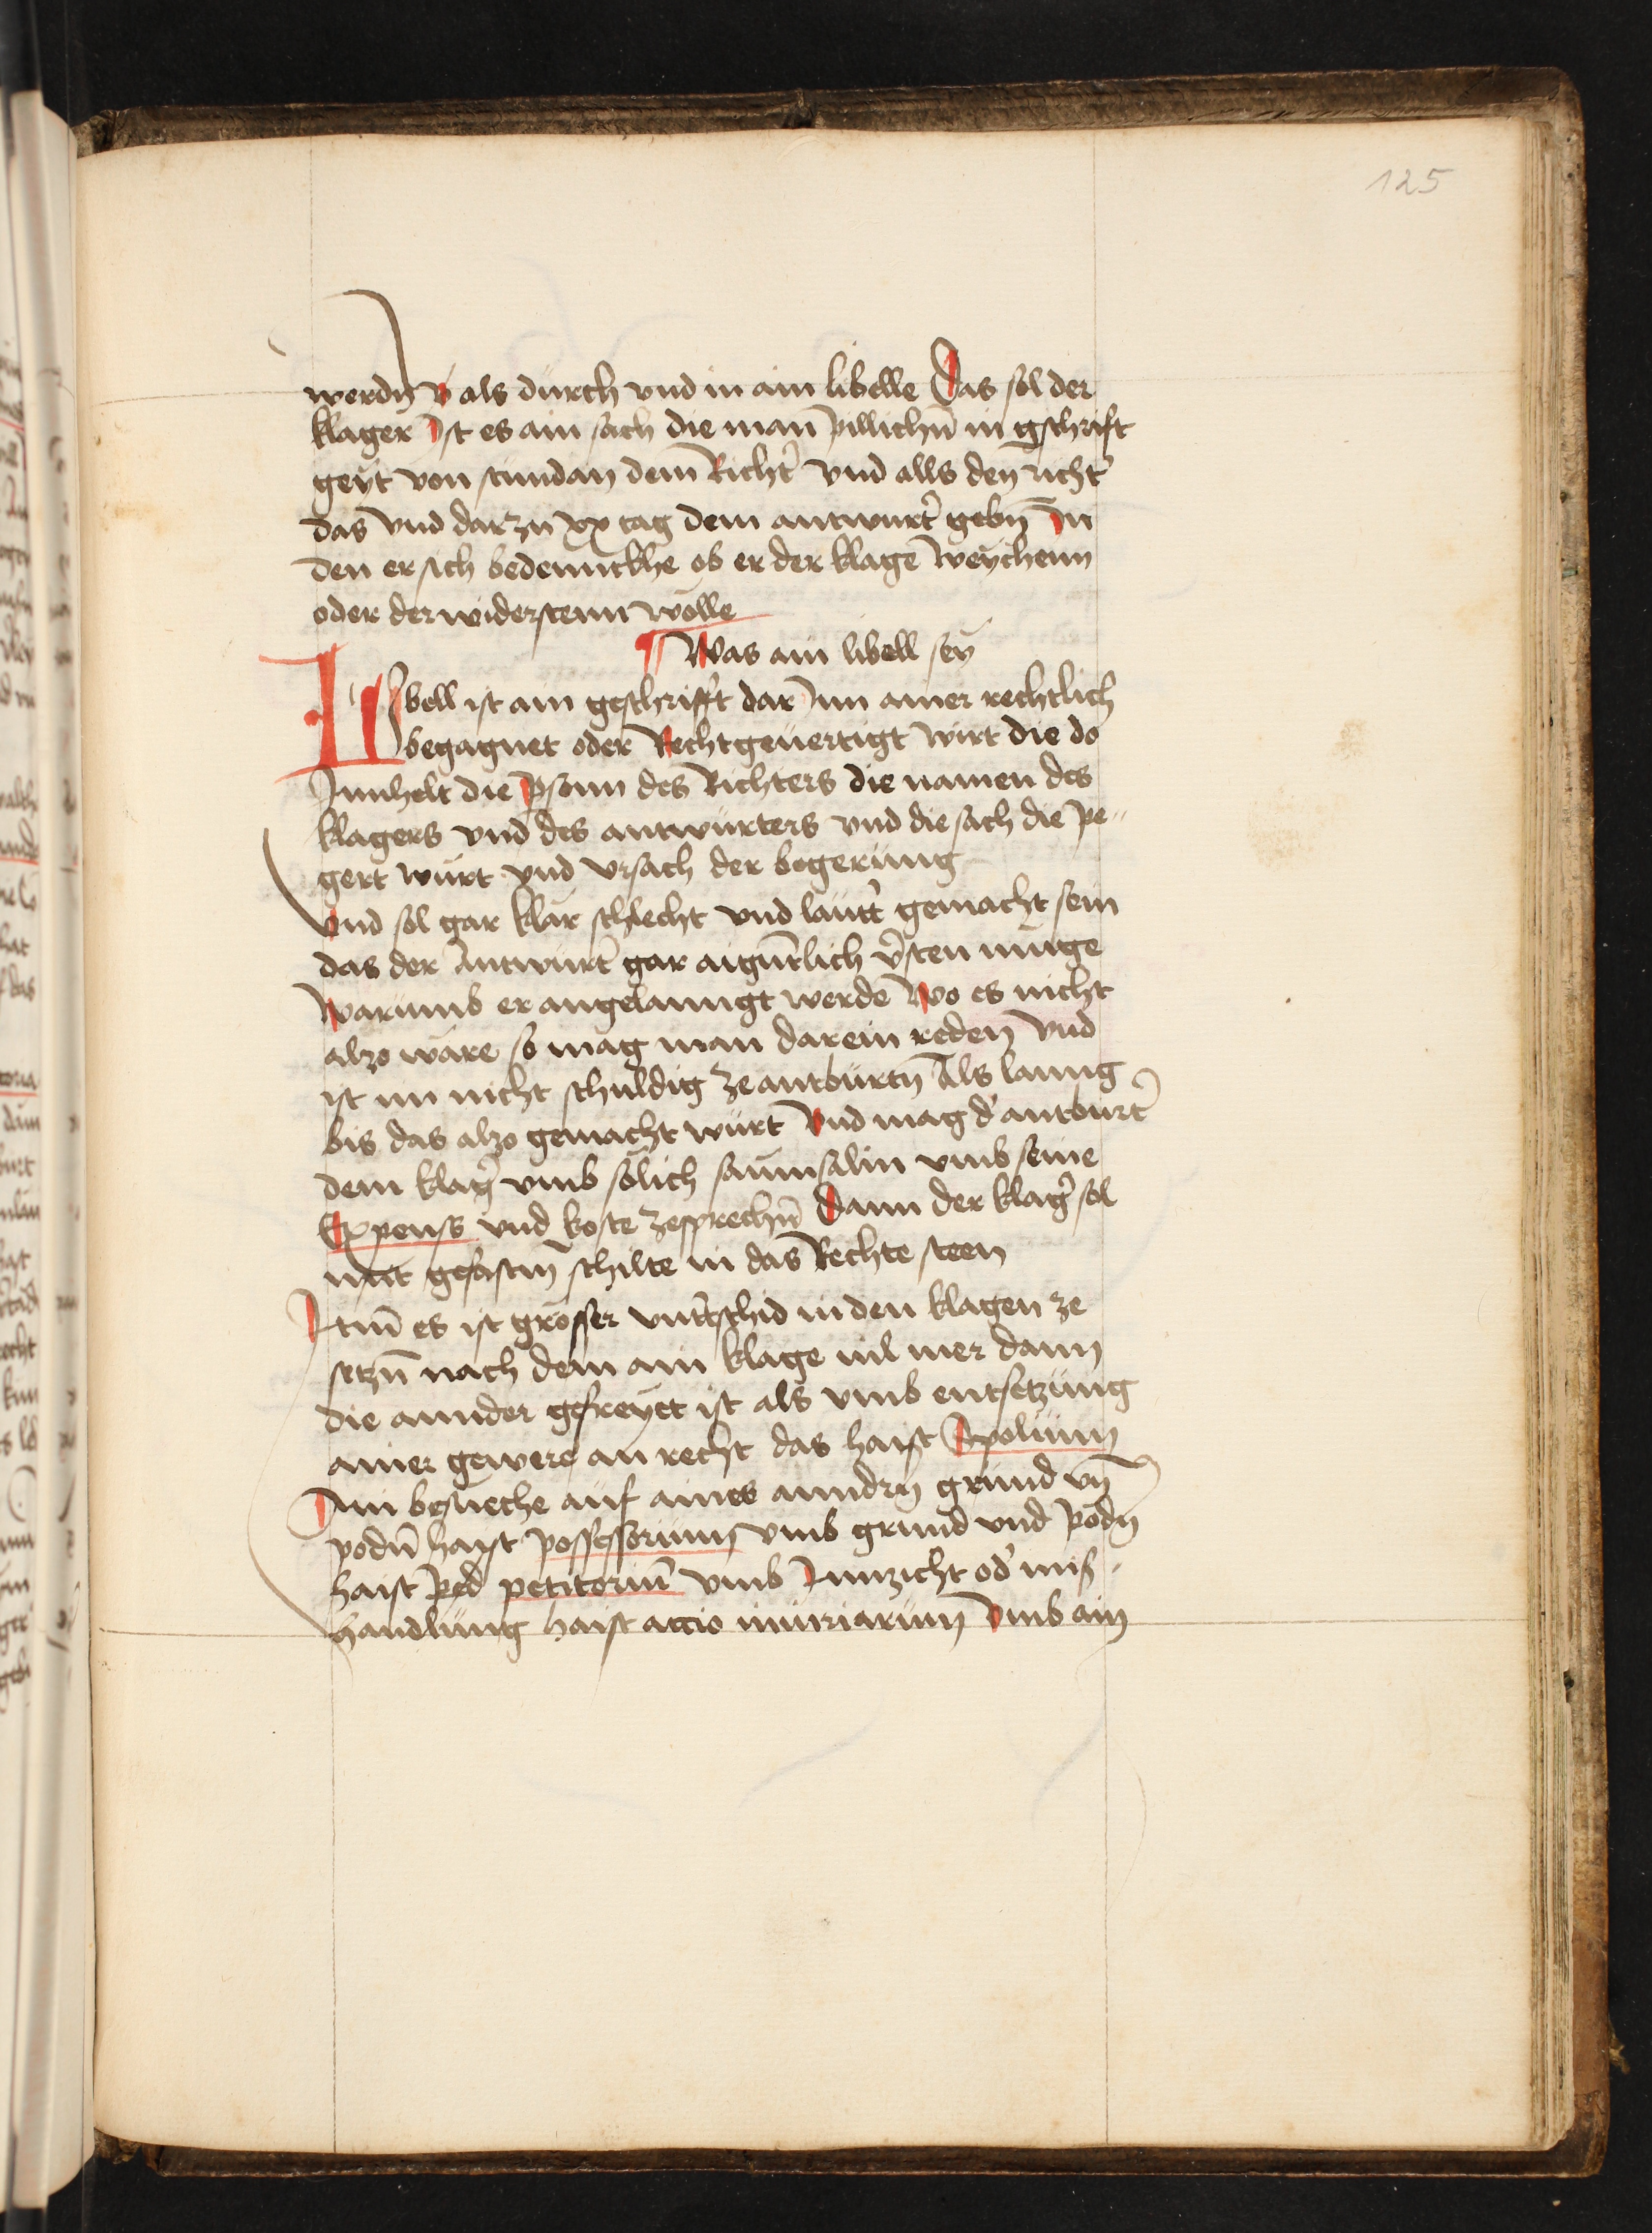 125
werdn̄ v als durch vnd in ain libelle Das sol der
klager Ist es ain sach die man pillichn̄ in gschrift
geyt von stundan dem Richt̓ vnd alls den richt̓
das vnd darzu xx tag dem antwurt̓ gebn̄ In
den er sich bedennckhe ob er der klage weychenn
oder der widerstenn wölle
¶ Was ain libell sey
LIbell ist ain geschrifft dar Inn ainer rechtlich
begagnet oder Rechtgeuertigt wirt die do
Innhelt die ꝑsonn des Richters die namen des
klagers vnd des antwurters vnd die sach die pe„
gert wurt vnd vrsach der begerung
Vnd sol gar klar schlecht vnd lautt̓ gemacht sein
das der Antwurt̓ gar aigntlich v̓sten muge
Warumb er angelanngt werde Wo es nicht
also ware so mag man darein reden vnd
ist im nicht schuldig ze antburtn̄ Als lanng
bis das also gemacht wurt Vnd mag d̓ antburt̓
dem klag̓ vmb solich saumsalin vmb seine
Expenss vnd koste zesprechn̄ Dann der klag̓ sol
mit gefastm̄ schilte in das Rechte steen
Itm̄ es ist grosser vntt̓schid in den klagen ze
setzn̄ nach dem ain klage uil mer dann
die annder gefreyet ist als vmb entsetzung
ainer gewere an recht das haist Spolium
Ain besueche auf aines anndrn̄ grund vn̄
podn̄ haist possessorium vmb grund vnd podn̄
haist ped petitoriu̅ vmb Innzicht od̓ mis„
handlung haist actio iniuriarum Vmb ain